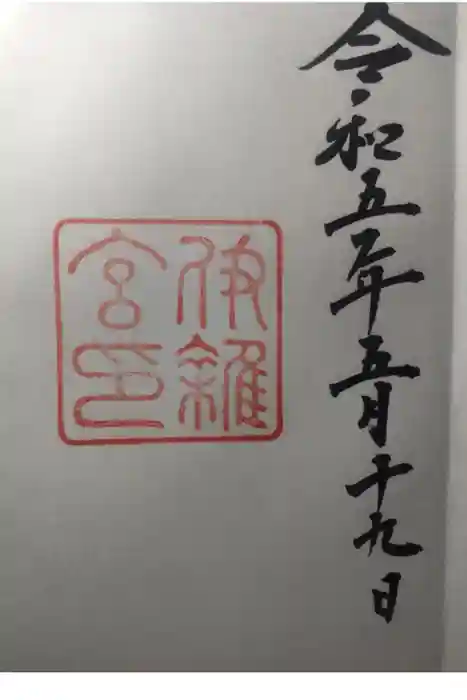 令和五年五月十九日
伊雜
宮印